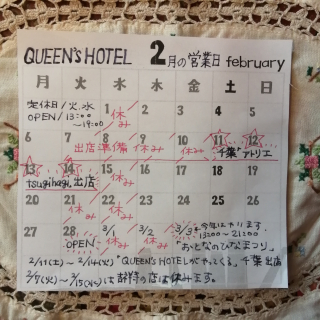 QUEEN'S HOTEL 2月の営業日 february
月 火 水 木 金 土 日
定休日/火.水 1 2 3 4 5
OPEN/13:00 休み
~19:00
6 7 8 9 10 11 12
出店準備休み 休み 千葉アトリエ
13 14 15 16 17 18 19
tsugihagi出店 休み
20 21 22 23 24 25 26
休み 休み
27 28 3/1 3/2 3/3 今年はやります
OPEN 休み 休み 13:00~21:00
「おとなのひなまつり」
2/11(土)~2/14(火)"QUEEN'S HOTELがやってくる"千葉出店
2/7(火)~2/15(水)は の店は休みます。